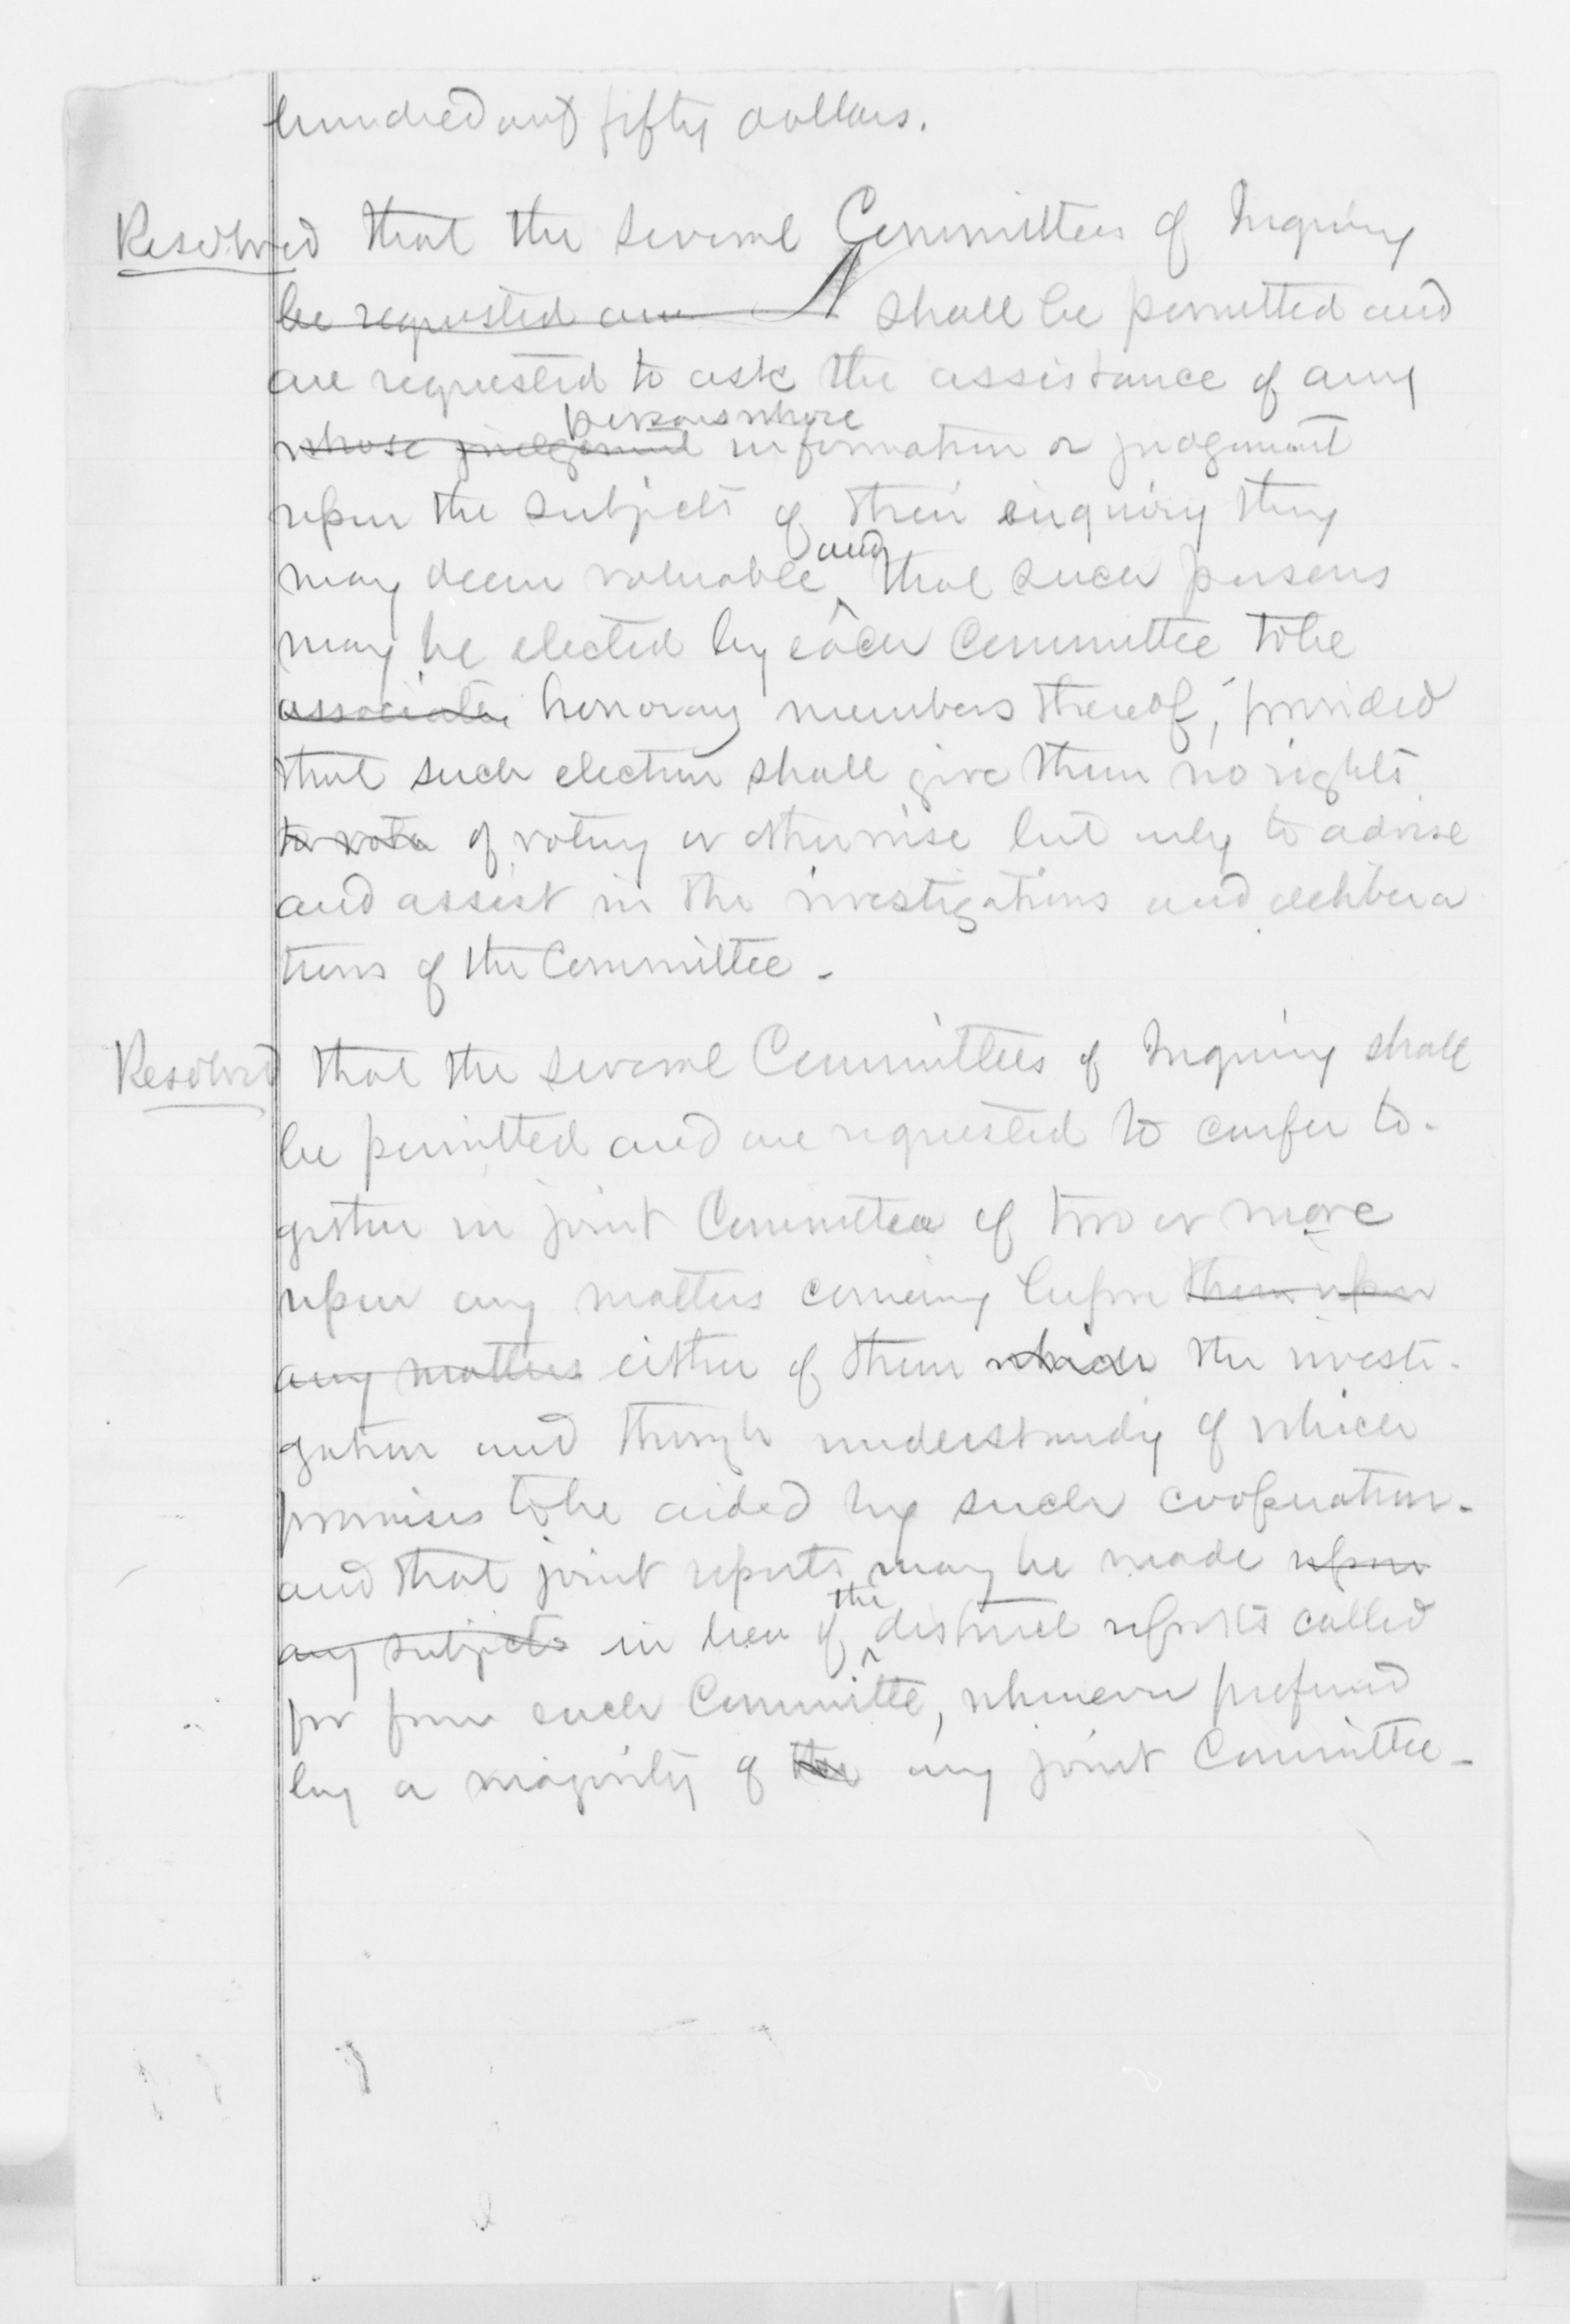 hundred and fifty dollars.
Resolved that the several Committees of Inquiry
be requested and shall be permitted and
are requested to ask the assistance of any
persons whose
whose judgement information or judgement
upon the subjects of their enquiry they
and
may deem valuable ^ that such persons
may be elected by each Committee to be
associate honorary members thereof; provided
that such election shall give them no rights
to vote of voting or otherwise but only to advise
and assist in the investigations and delibera
tions of the Committee -
Resolved that the several Committees of Inquiry shall
be permitted and are requested to confer to-
gether in joint Committee of two or more
upon any matters coming before them upon
any matters either of them which the investi-
gation and through understandig of which
promises to be aided by such cooperation -
and that joint reports may be made upon
the
any subjects in lieu of ^ distinct reports called
for from such Committe, whenever preferred
by a majority of the any joint Committee -